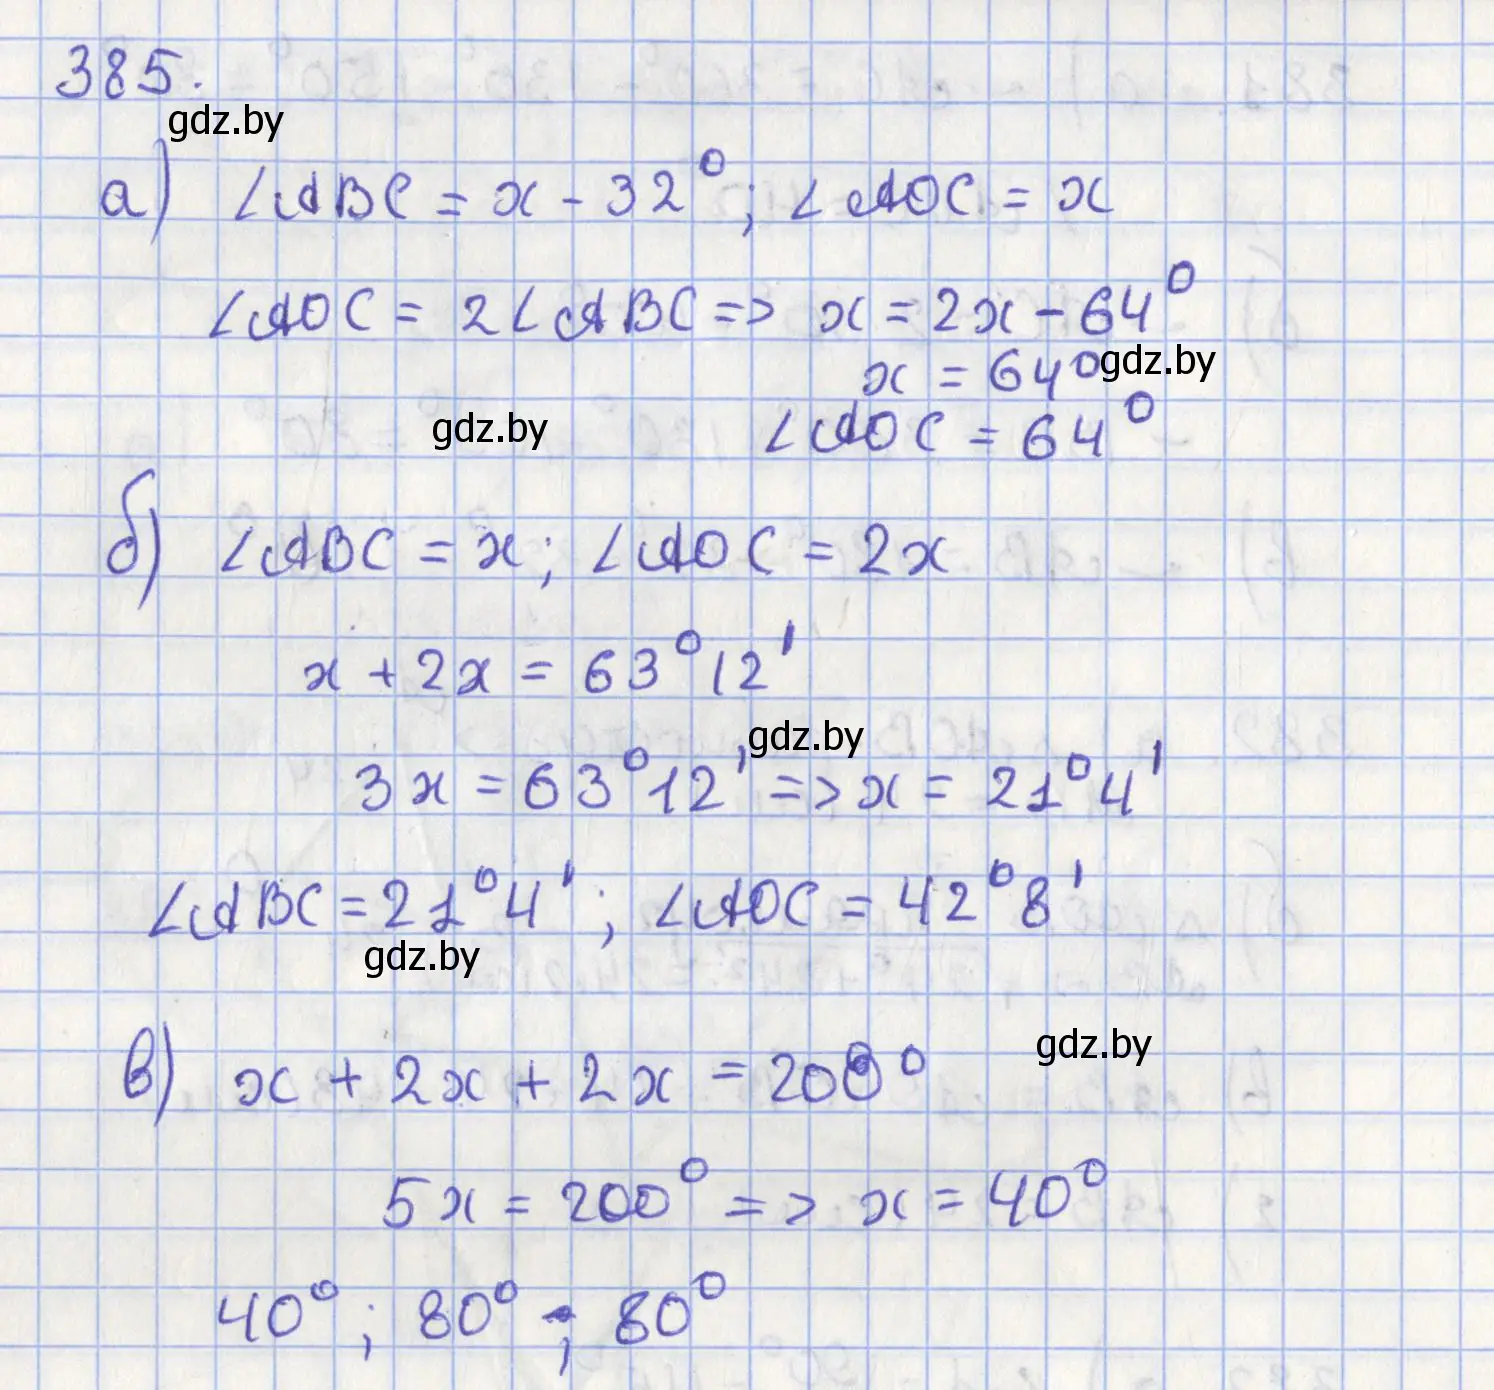 385.
gdz.by
а) ∠ABC = x - 32°; ∠AOC = x
∠AOC = 2∠ABC => x = 2x - 64°
x = 64° gdz.by
gdz.by ∠AOC = 64°
б) ∠ABC = x; ∠AOC = 2x
x + 2x = 63°12'
gdz.by
3x = 63°12' => x = 21°4'
∠ABC = 21°4'; ∠AOC = 42°8'
gdz.by
gdz.by
в) x + 2x + 2x = 200°
5x = 200° => x = 40°
40°; 80°; 80°